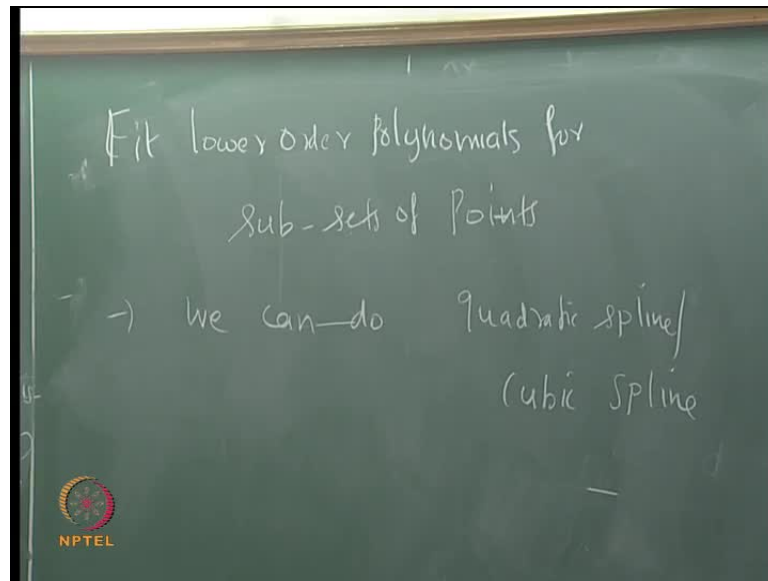 Fit lower order polynomials for
sub-sets of Points
→ We can do quadratic spline/
Cubic Spline
NPTEL